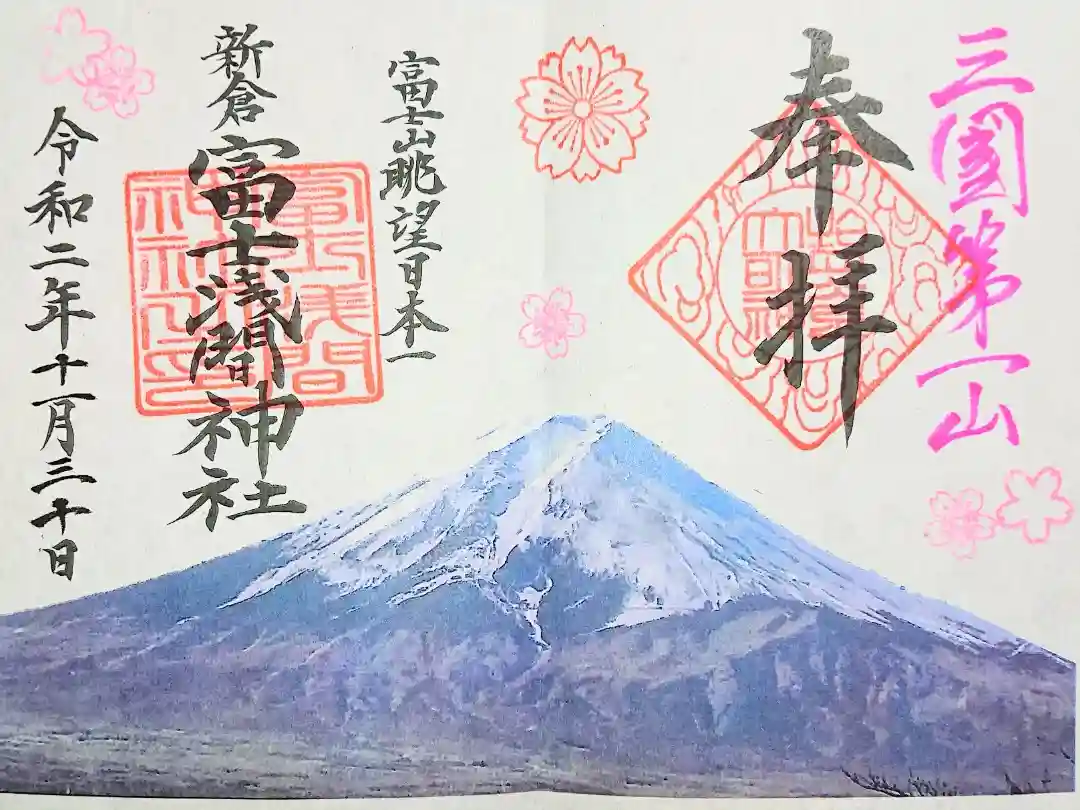 三國第一山
奉拝
富士山眺望日本一
新倉富士浅間神社
富士浅間
神社之印
令和二年十一月三十日